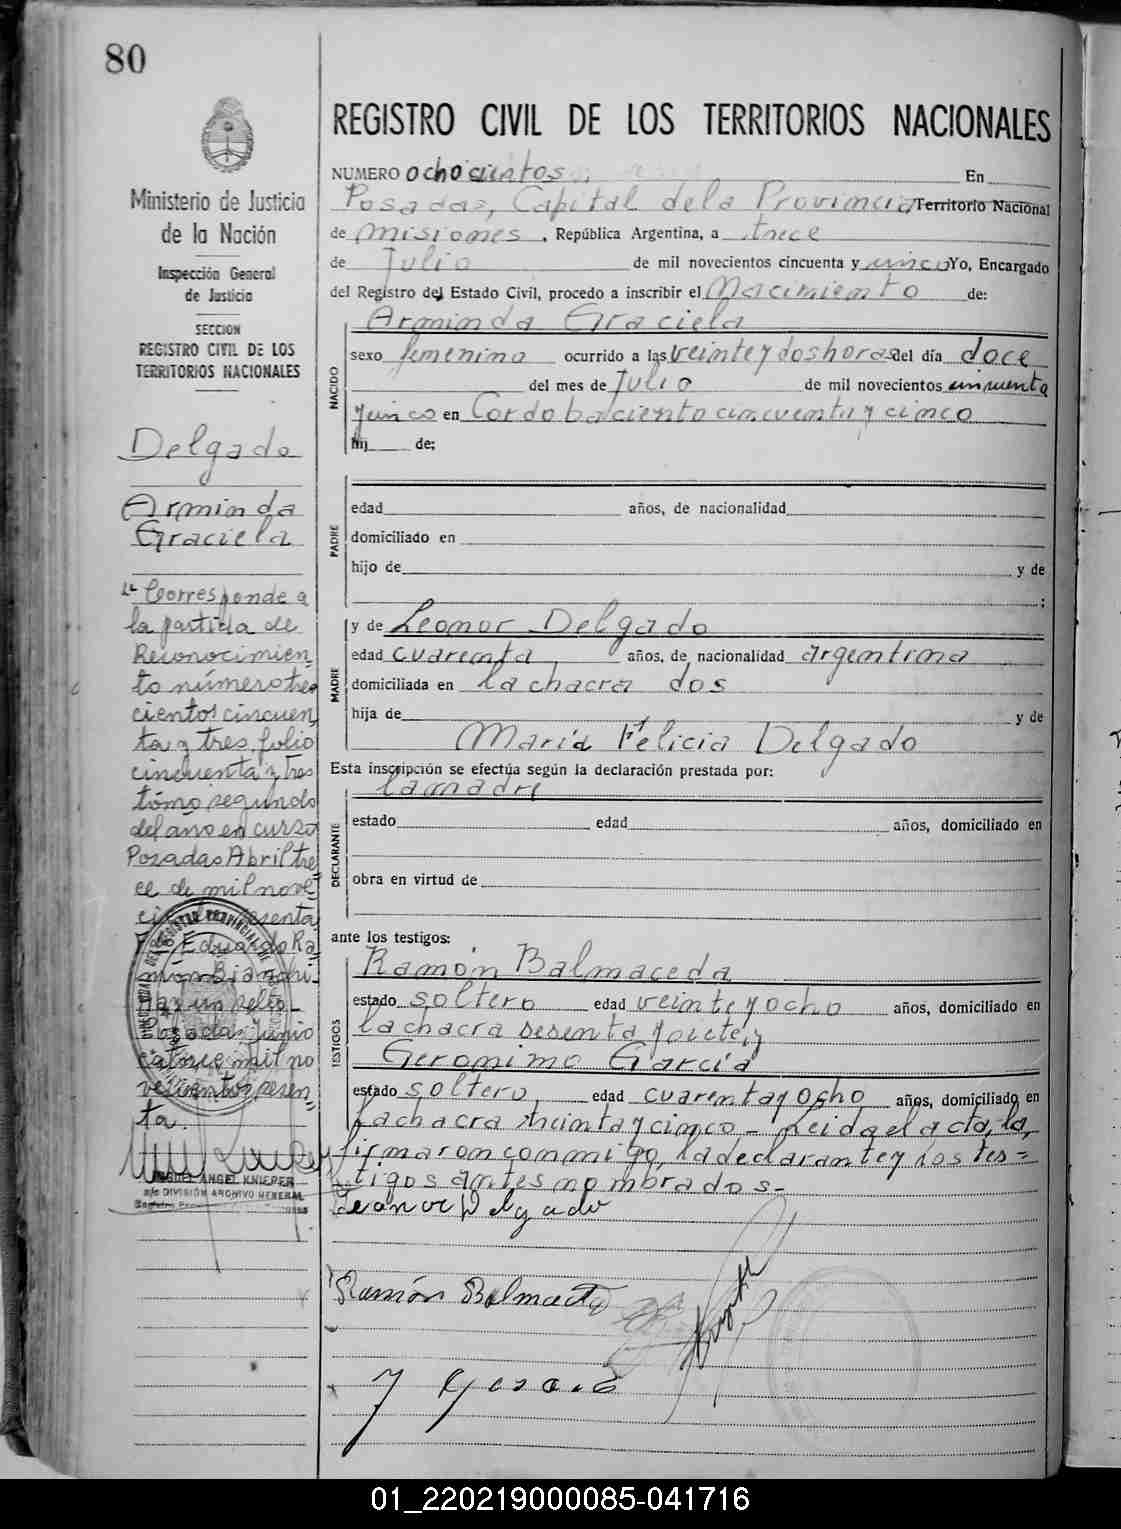 80
REGISTRO CIVIL DE LOS TERRITORIOS NACIONALES
NUMERO ochocientos En
Posadas, Capital de la Provincia Territorio Nacional
de Misiones, República Argentina, a trece
de Julio de mil novecientos cincuenta y cinco Yo, Encargado
del Registro del Estado Civil, procedo a inscribir el Nacimiento de:
NACIDO
Arminda Graciela
sexo femenino ocurrido a las veinte y dos horas del día doce
del mes de Julio de mil novecientos cincuenta
y cinco en Cordoba ciento cincuenta y cinco
hij de:
PADRE
edad años, de nacionalidad
domiciliado en
hijo de y de
:
MADRE
y de Leonor Delgado
edad cuarenta años, de nacionalidad argentina
domiciliada en la chacra dos
hija de y de
María Felicia Delgado
Esta inscripción se efectúa según la declaración prestada por:
DECLARANTE
la madre
estado edad años, domiciliado en
obra en virtud de
ante los testigos:
TESTIGOS
Ramón Balmaceda
estado soltero edad veinte y ocho años, domiciliado en
la chacra sesenta y siete y
Geronimo García
estado soltero edad cuarenta y ocho años, domiciliado en
la chacra treinta y cinco.- Leida el acta, la
firmaron conmigo, la declarante y los tes=
tigos antes nombrados-
Leanor Delgado
Ramón Balmaceda
J Garcia
Ministerio de Justicia
de la Nación
Inspección General
de Justicia
SECCION
REGISTRO CIVIL DE LOS
TERRITORIOS NACIONALES
Delgado
Arminda
Graciela
Corresponde a
la partida de
Reconocimien
to número tres
cientos cincuen
ta y tres, folio
cincuenta y tres
tómo segundo
del año en curso
Posadas Abril tre
ce de mil nove
sesenta
Eduardo Ra
món Bianchi
Hay un sello-
Posadas Junio
catorce mil no
vecientos sesen
ta.
MIGUEL ANGEL KNIEPER
a/c DIVISIÓN ARCHIVO GENERAL
01_220219000085-041716